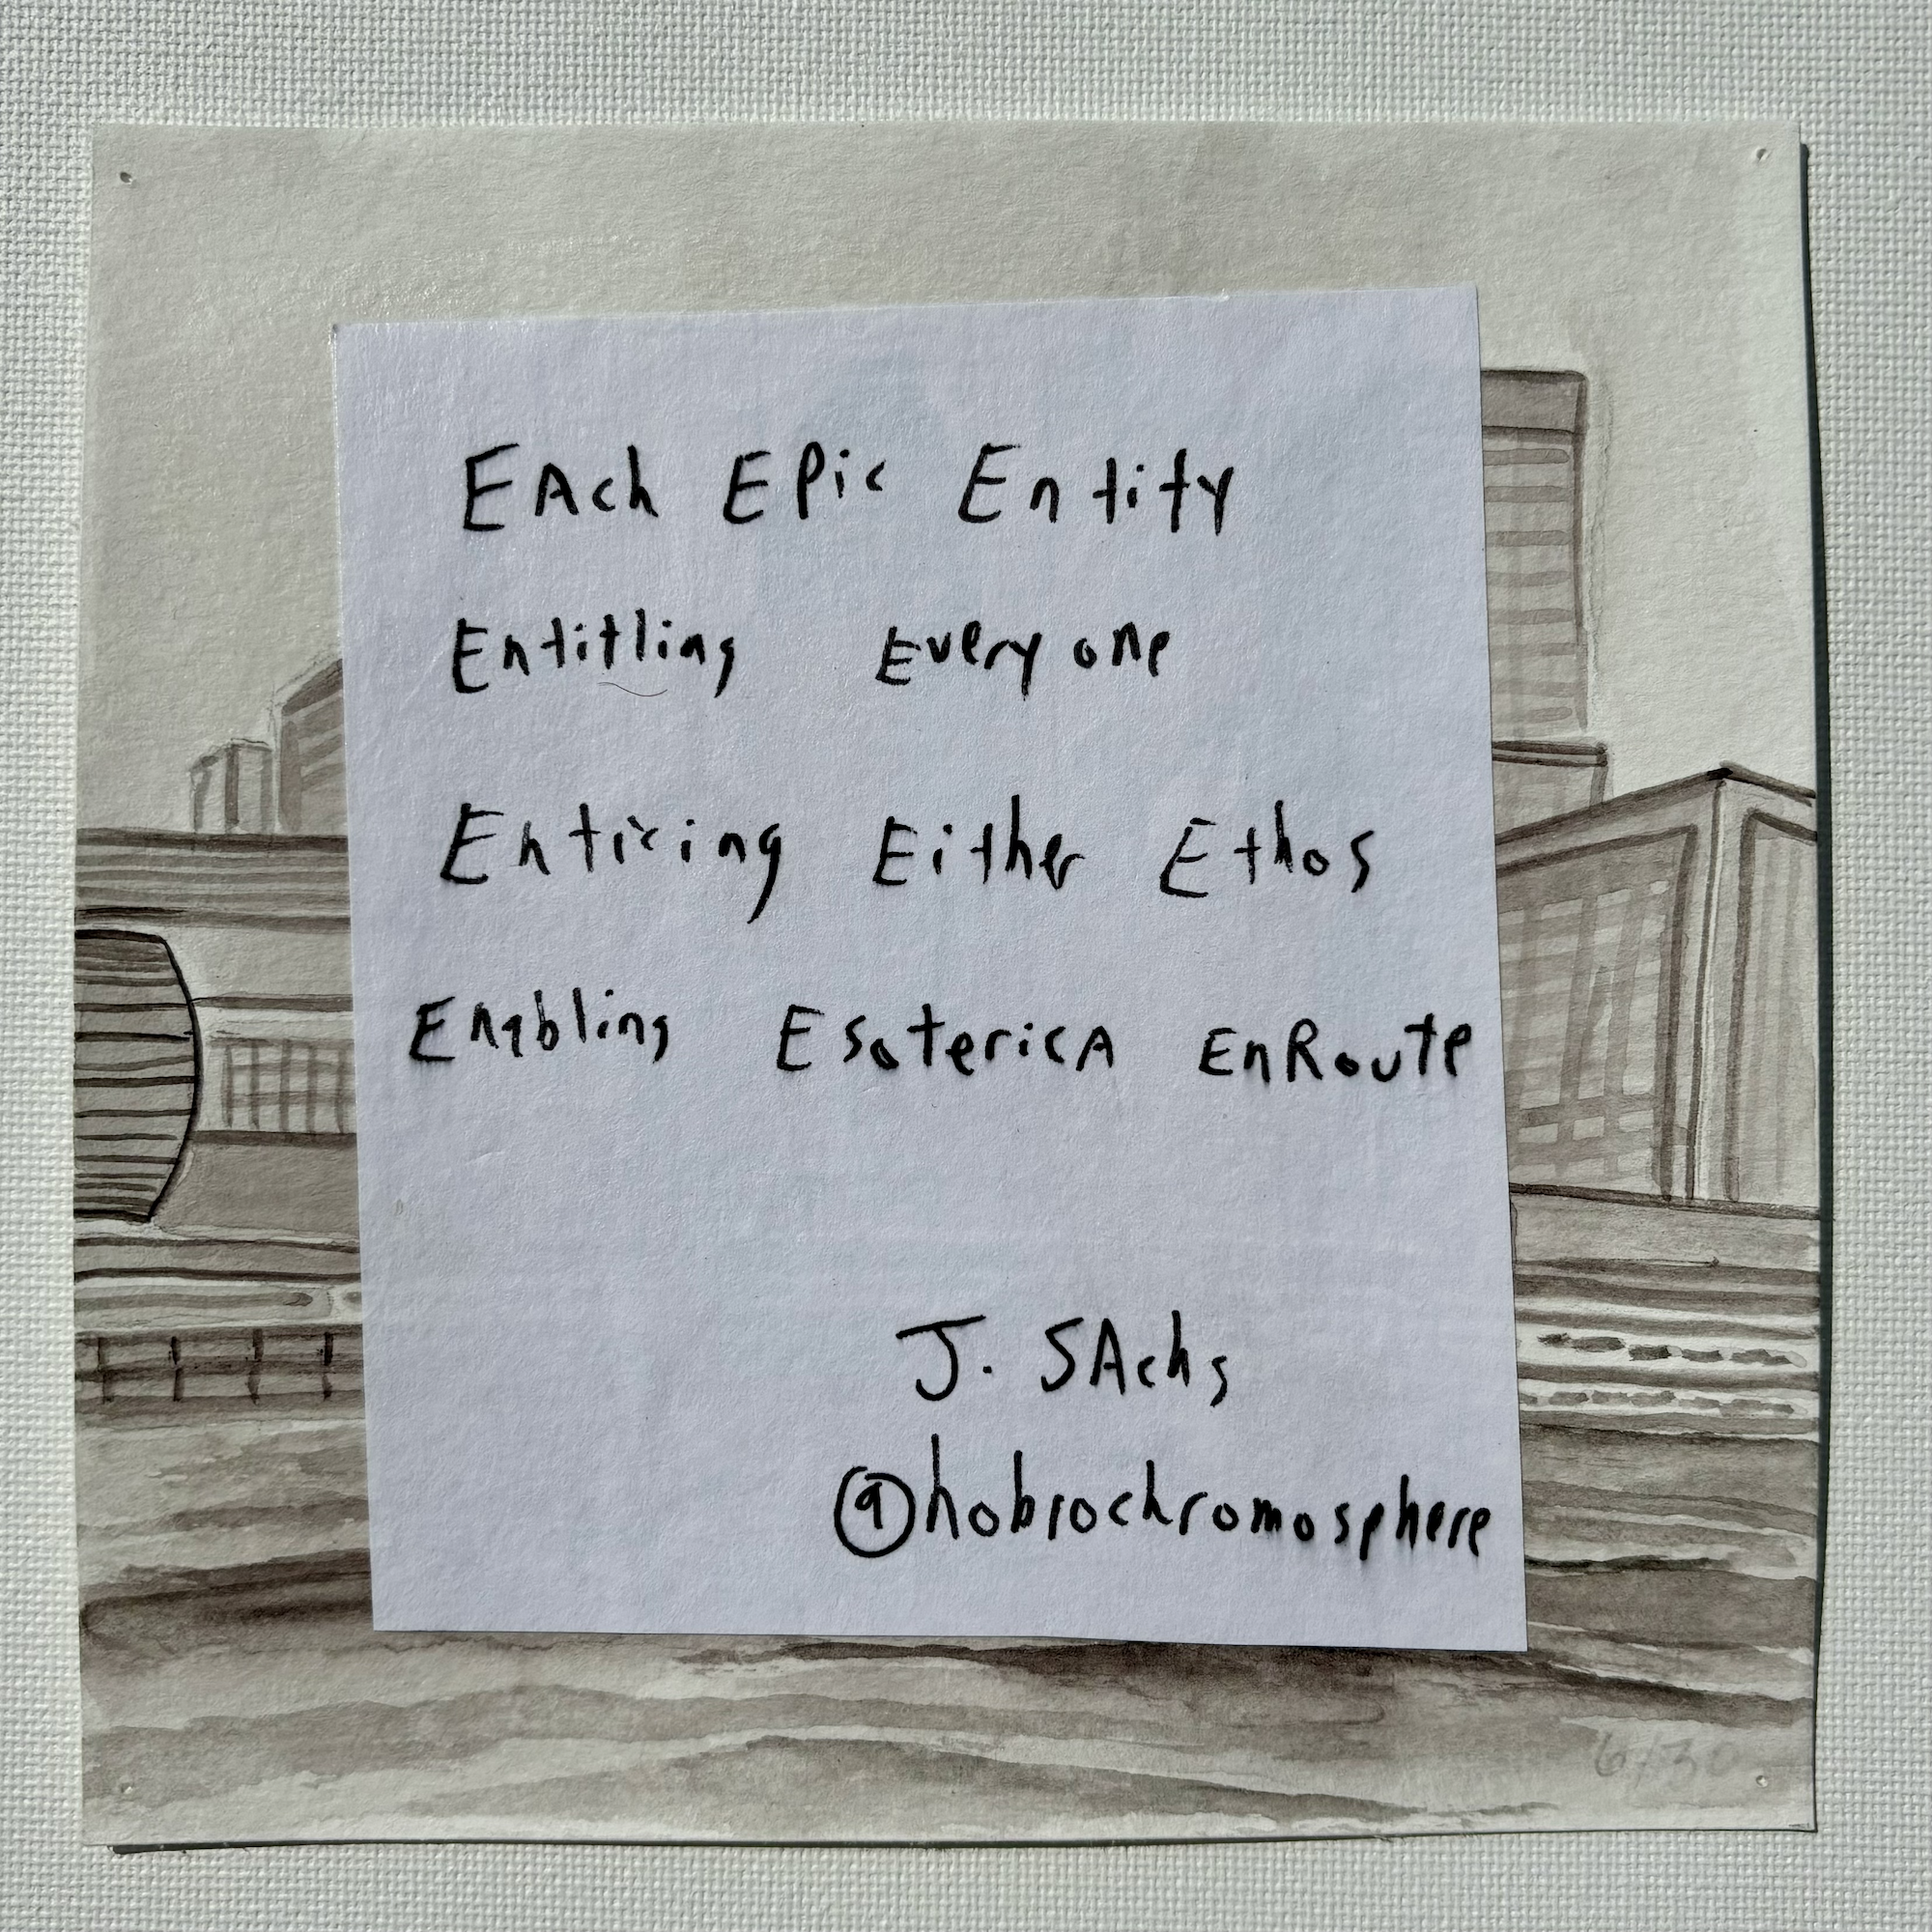 EAch EPic Entity
Entitling Everyone
Enticing Either Ethos
Enabling EsotericA EnRoute
J. SAchs
@hobrochromosphere
6/30